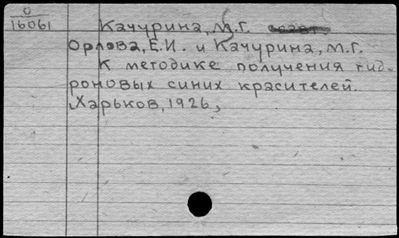 О
16061
Качурина, М.Г.
Орлова, Е.И. и Качурина, М.Г.
К методике получения гид-
роновых синих красителей.
Харьков, 1926,